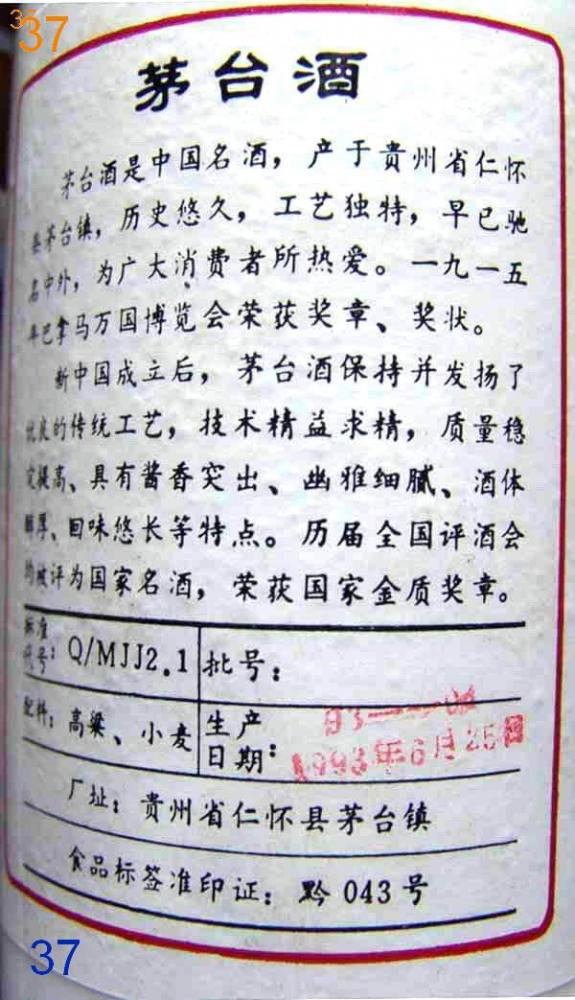 37
茅台酒
茅台酒是中国名酒，产于贵州省仁怀
县茅台镇，历史悠久，工艺独特，早已驰
名中外，为广大消费者所热爱。一九一五
年巴拿马万国博览会荣获奖章、奖状。
新中国成立后，茅台酒保持并发扬了
优良的传统工艺，技术精益求精，质量稳
定提高、具有酱香突出、幽雅细腻、酒体
醇厚、回味悠长等特点。历届全国评酒会
均被评为国家名酒，荣获国家金质奖章。
标准代号：Q/MJJ2.1 批号：
配料：高粱、小麦 生产日期：
1993年6月25日
厂址：贵州省仁怀县茅台镇
食品标签准印证：黔 043 号
37